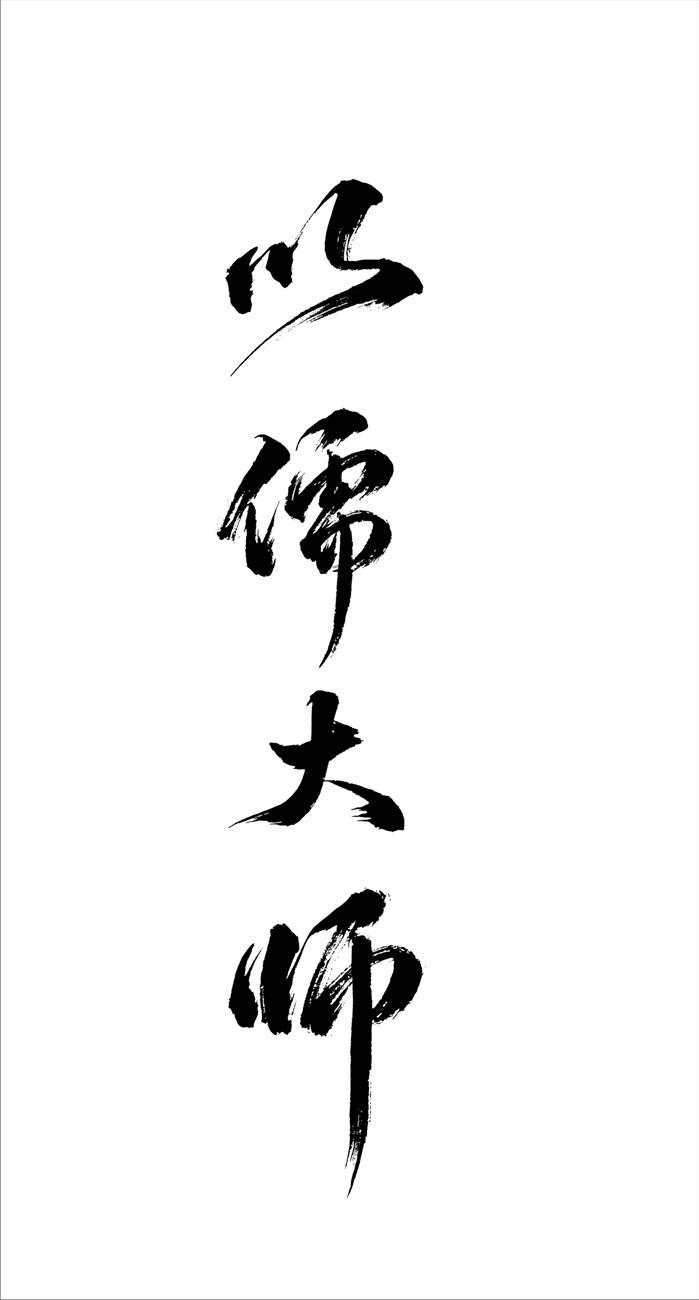 以儒大师